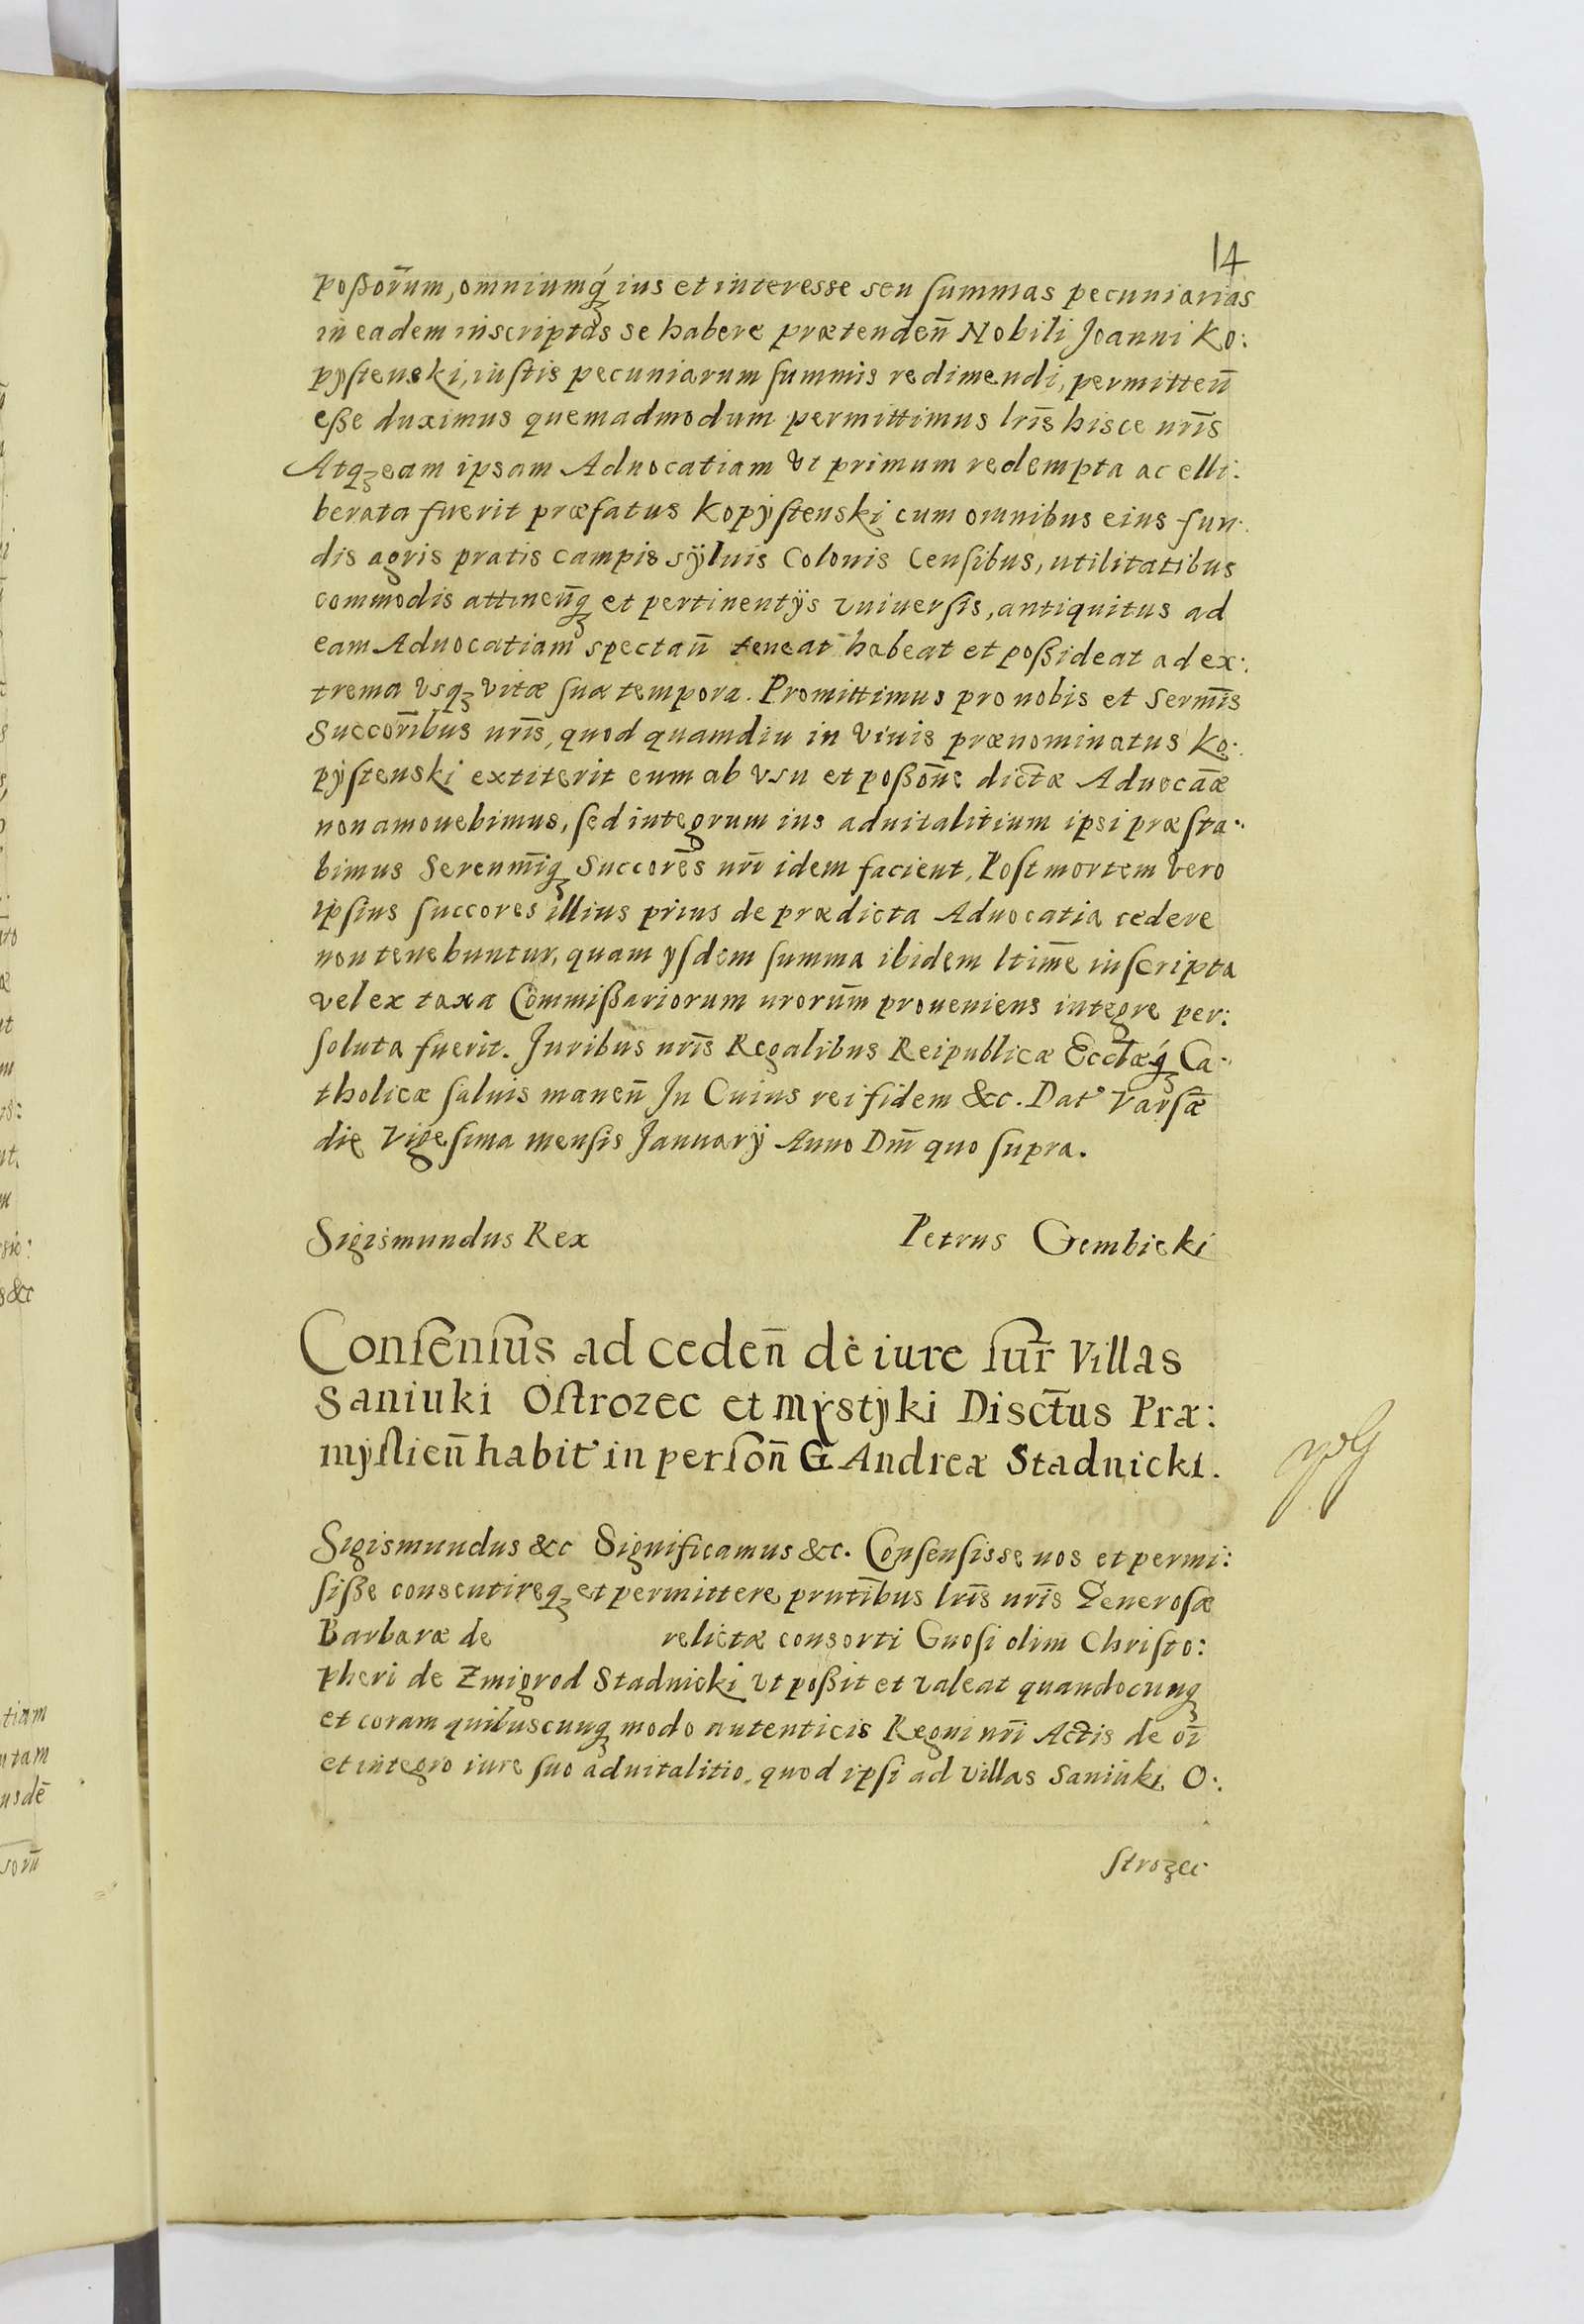 14
poßor̄um, omniumq́ꝫ ius et interesse seu summas pecuniarias
in eadem inscriptas se habere prætendeñ Nobili Joanni Ko:
pystenski, iustis pecuniarum summis redimendi, permitteñ
eße duximus quemadmodum permittimus lrīs hisce nrīs
Atqꝫ eam ipsam Aduocatiam vt primum redempta ac elli:
berata fuerit præfatus Kopÿstenski cum omnibus eius fun:
dis agris pratis campis sÿluis Colonis Censibus, utilitatibus
commodis attineñqꝫ et pertinentÿs vniuersis, antiquitus ad
eam Aduocatiam spectañ teneat habeat et poßideat ad ex:
trema vsqꝫ vitæ suæ tempora. Promittimus pro nobis et Serm̄is
Succor̄ibus nrīs, quod quamdiu in viuis prænominatus Ko:
pÿstenski extiterit eum ab vsu et poßōne dictæ Aduocāæ
non amouebimus, sed integrum ius aduitalitium ipsi præsta:
bimus Serenm̄iqꝫ Succorēs nrī idem facient, Post mortem vero
ipsius succores illius prius de prædicta Aduocatia cedere
non tenebuntur, quam ysdem summa ibidem ltim̄e inscripta
vel ex taxa Commißariorum nrorum̄ proueniens integre per:
soluta fuerit. Juribus nrīs Regalibus Reipublicæ Ecclæq́ꝫ Ca:
tholicæ saluis maneñ In Cuius rei fidem &c. Dat' Varsǣ
die Vigesima mensis Januarÿ Anno Dm̄ quo supra.
Sigismundus Rex Petrus Gembicki
Consensus ad cedeñ de iure sur̄ Villas
Saniuki Ostrozec et Mÿstÿki Disct̄us Præ:
mÿslieñ habit' in persoñ G Andreæ Stadnicki.
Sigismundus &c Significamus &c. Consensisse nos et permi:
siße consentireqꝫ et permittere prntībus lrīs nrīs Generosæ
Barbaræ de relictæ consorti Gnosi olim Christo:
pheri de Zmigrod Stadnicki vt poßit et valeat quandocunqꝫ
et coram quibuscunqꝫ modo autenticis Regni nrī Actis de oī
et integro iure suo aduitalitio, quod ipsi ad villas Saniuki O:
strozec